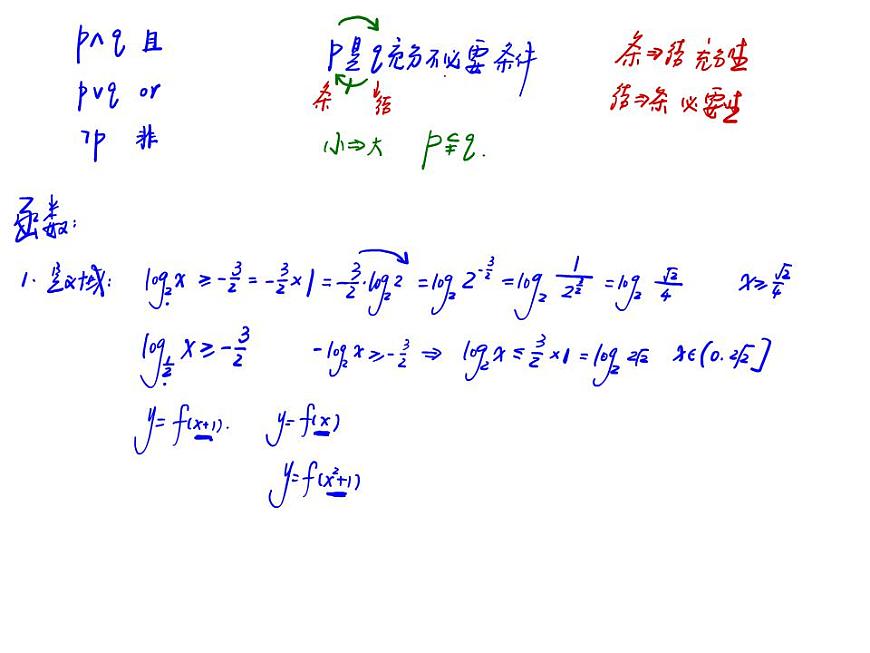 p∧q 且
p∨q or
¬p 非
p是q充分不必要条件
条 结
小⇒大 p⫋q.
条⇒结 充分性
结⇒条 必要性
函数:
1. 定义域: log₂x ≥ -3/2 = -3/2×1 = -3/2·log₂2 = log₂2^(-3/2) = log₂ 1/2^(3/2) = log₂ √2/4 x≥√2/4
log_(1/2) x ≥ -3/2 -log₂x ≥ -3/2 ⇒ log₂x ≤ 3/2×1 = log₂2√2 x∈(0.2√2]
y=f(x+1). y=f(x)
y=f(x²+1)